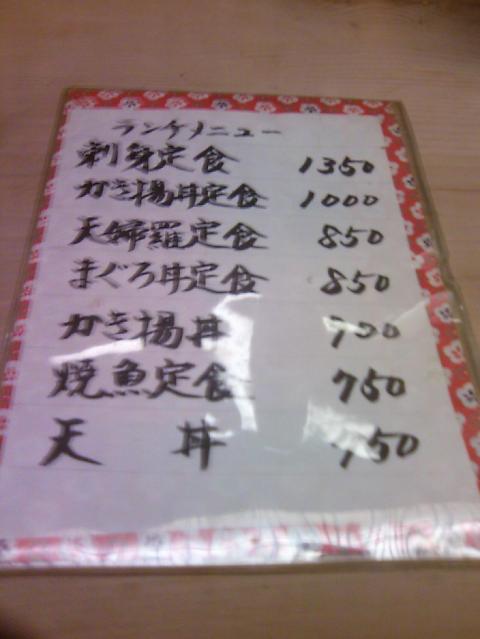 ランチメニュー
刺身定食 1350
かき揚丼定食 1000
天婦羅定食 850
まぐろ丼定食 850
かき揚丼
焼魚定食 750
天丼